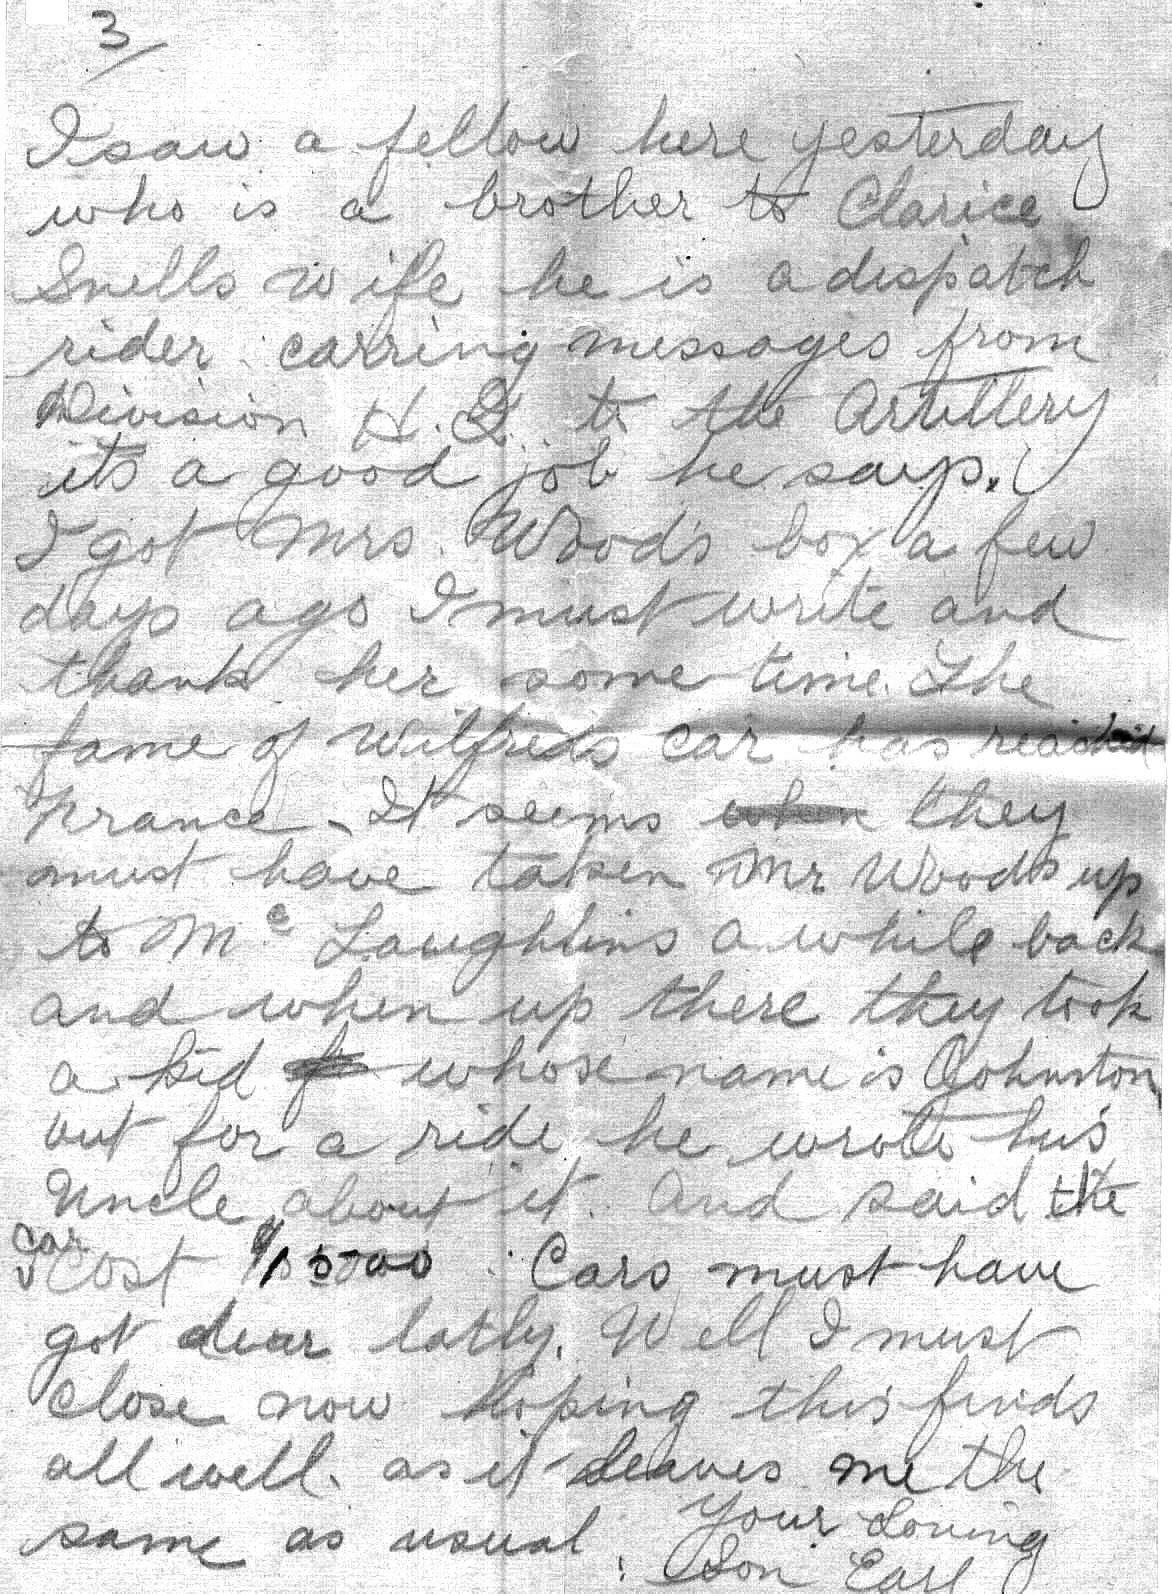 3/
I saw a fellow here yesterday
who is a brother to Clarice
Snells wife he is a dispatch
rider carring messages from
Division H.Q. to the Artillery
its a good job he says.
I got Mrs. Wood's box a few
days ago I must write and
thank her some time. The
fame of Wilfreds car has reached
France. It seems when they
must have taken Mr Woods up
to Mc Laughlins a while back
and when up there they took
a kid whose name is Johnston
out for a ride he wrote his
Uncle about it. And said the
car
cost $1500. Cars must have
got dear latly. Well I must
close now hoping this finds
all well. as it leaves me the
same as usual. Your Loving
Son Earl